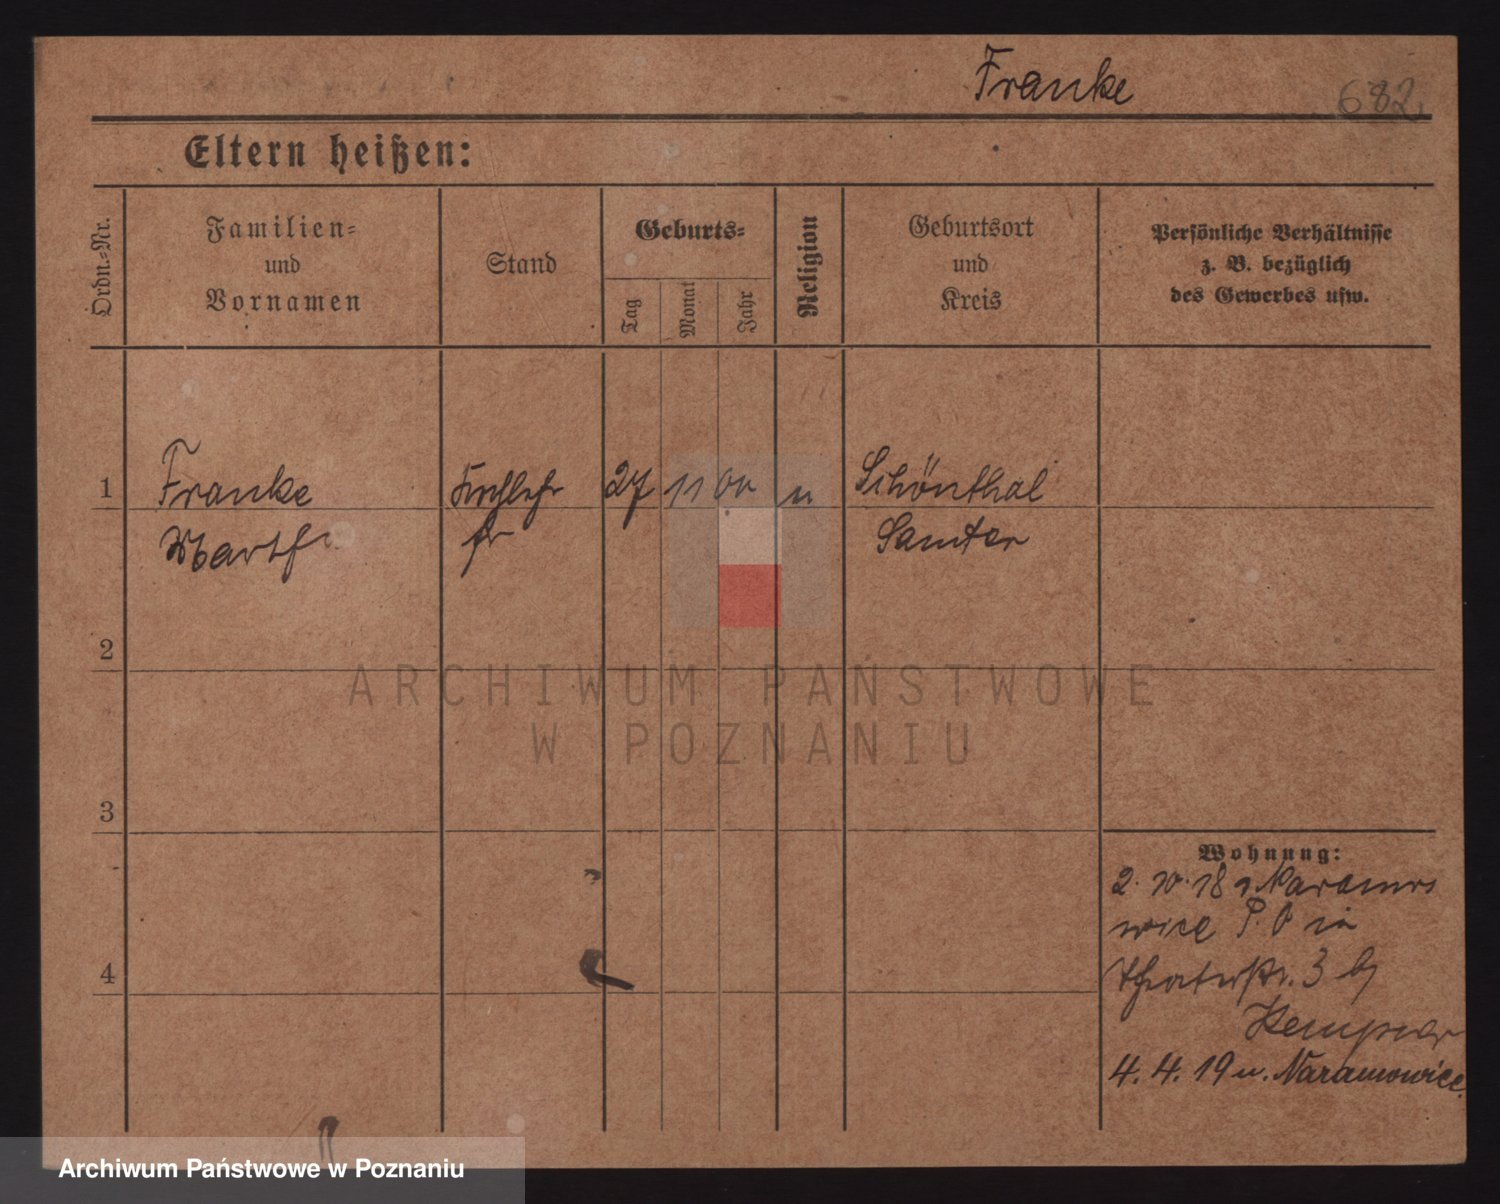 Franke
682.
Eltern heißen:
Ordn.-Nr.
Familien-
und
Vornamen
Stand
Geburts-
Tag
Monat
Jahr
Religion
Geburtsort
und
Kreis
Persönliche Verhältnisse
z. B. bezüglich
des Gewerbes usw.
1
Franke
27 11 00
Schönthal
Samter
2
ARCHIWUM PAŃSTWOWE
W POZNANIU
3
Wohnung:
2. 10. 18
P. O in
Theaterstr. 3 bj
4
4. 4. 19 n. Naramowice
Archiwum Państwowe w Poznaniu